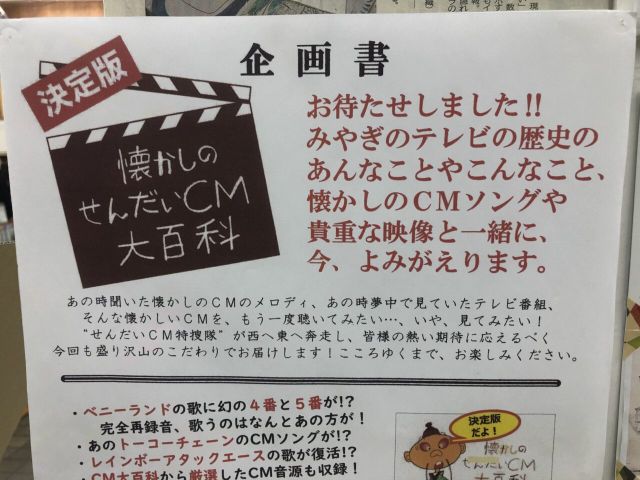 企画書
決定版
懐かしの
せんだいCM
大百科
お待たせしました!!
みやぎのテレビの歴史の
あんなことやこんなこと、
懐かしのCMソングや
貴重な映像と一緒に、
今、よみがえります。
あの時聞いた懐かしのCMのメロディ、あの時夢中で見ていたテレビ番組、
そんな懐かしいCMを、もう一度聴いてみたい…、いや、見てみたい!
“せんだいCM特捜隊”が西へ東へ奔走し、皆様の熱い期待に応えるべく
今回も盛り沢山のこだわりでお届けします!こころゆくまで、お楽しみください。
・ベニーランドの歌に幻の4番と5番が!?
完全再録音、歌うのはなんとあの方が!
・あのトーコーチェーンのCMソングが!?
・レインボーアタックエースの歌が復活!?
・CM大百科から厳選したCM音源も収録!
決定版
だよ!
懐かしの
せんだいCM